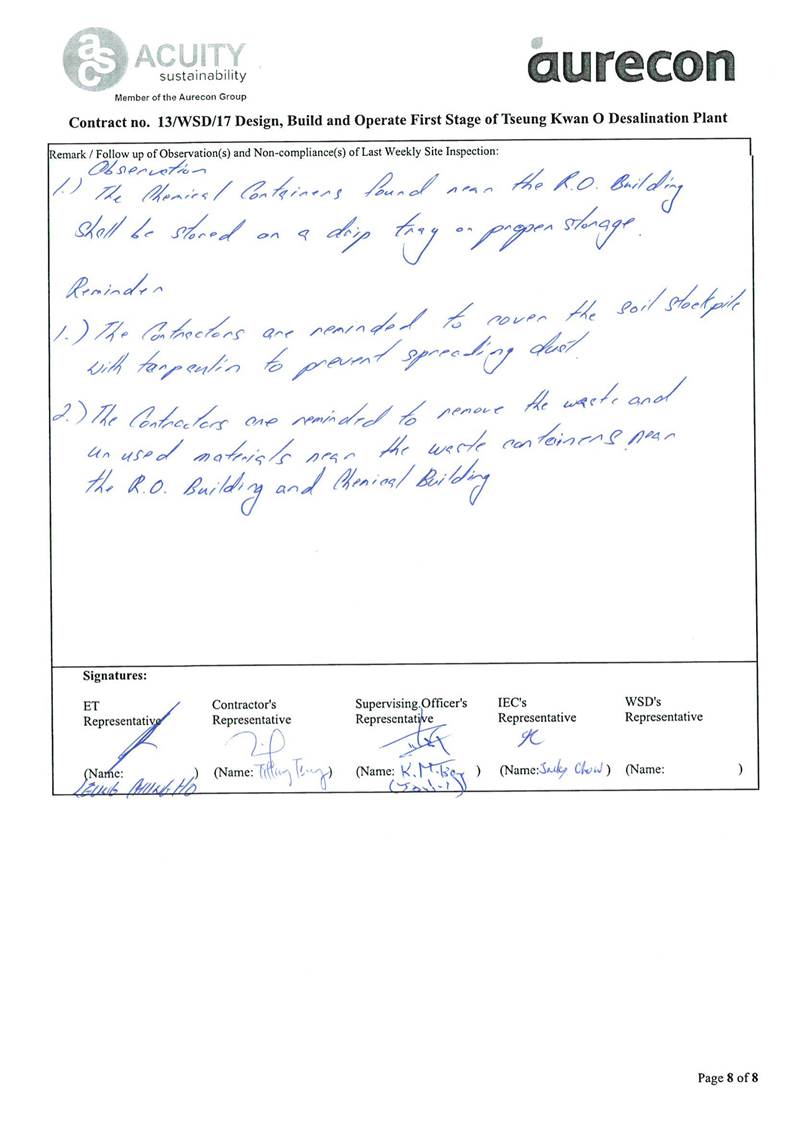 asc ACUITY
sustainability
Member of the Aurecon Group
aurecon
Contract no. 13/WSD/17 Design, Build and Operate First Stage of Tseung Kwan O Desalination Plant
Remark / Follow up of Observation(s) and Non-compliance(s) of Last Weekly Site Inspection:
Observation
1.) The Chemical Containers found near the R.O. Building
shall be stored on a drip tray or proper storage.
Reminder
1.) The Contractors are reminded to cover the soil stockpile
with tarpaulin to prevent spreading dust.
2.) The Contractors are reminded to remove the waste and
unused materials near the waste containers near
the R.O. Building and Chemical Building
Signatures:
ET Representative
Contractor's Representative
Supervising Officer's Representative
IEC's Representative
WSD's Representative
(Name: LEUNG HO)
(Name: Tiffany Tsang)
(Name: K.M. )
(Name: Jacky Chow)
(Name: )
Page 8 of 8